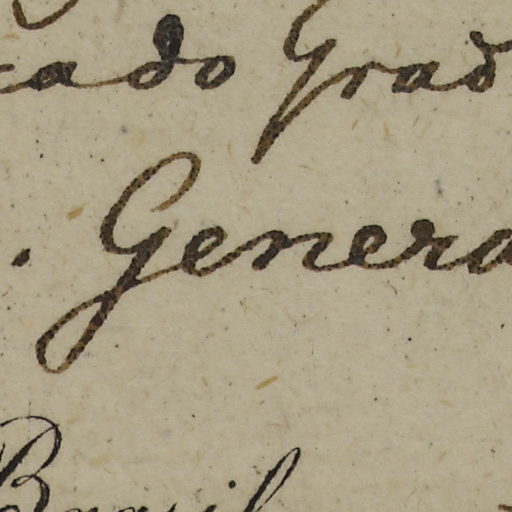 cado Grad
. Genera
Brasil